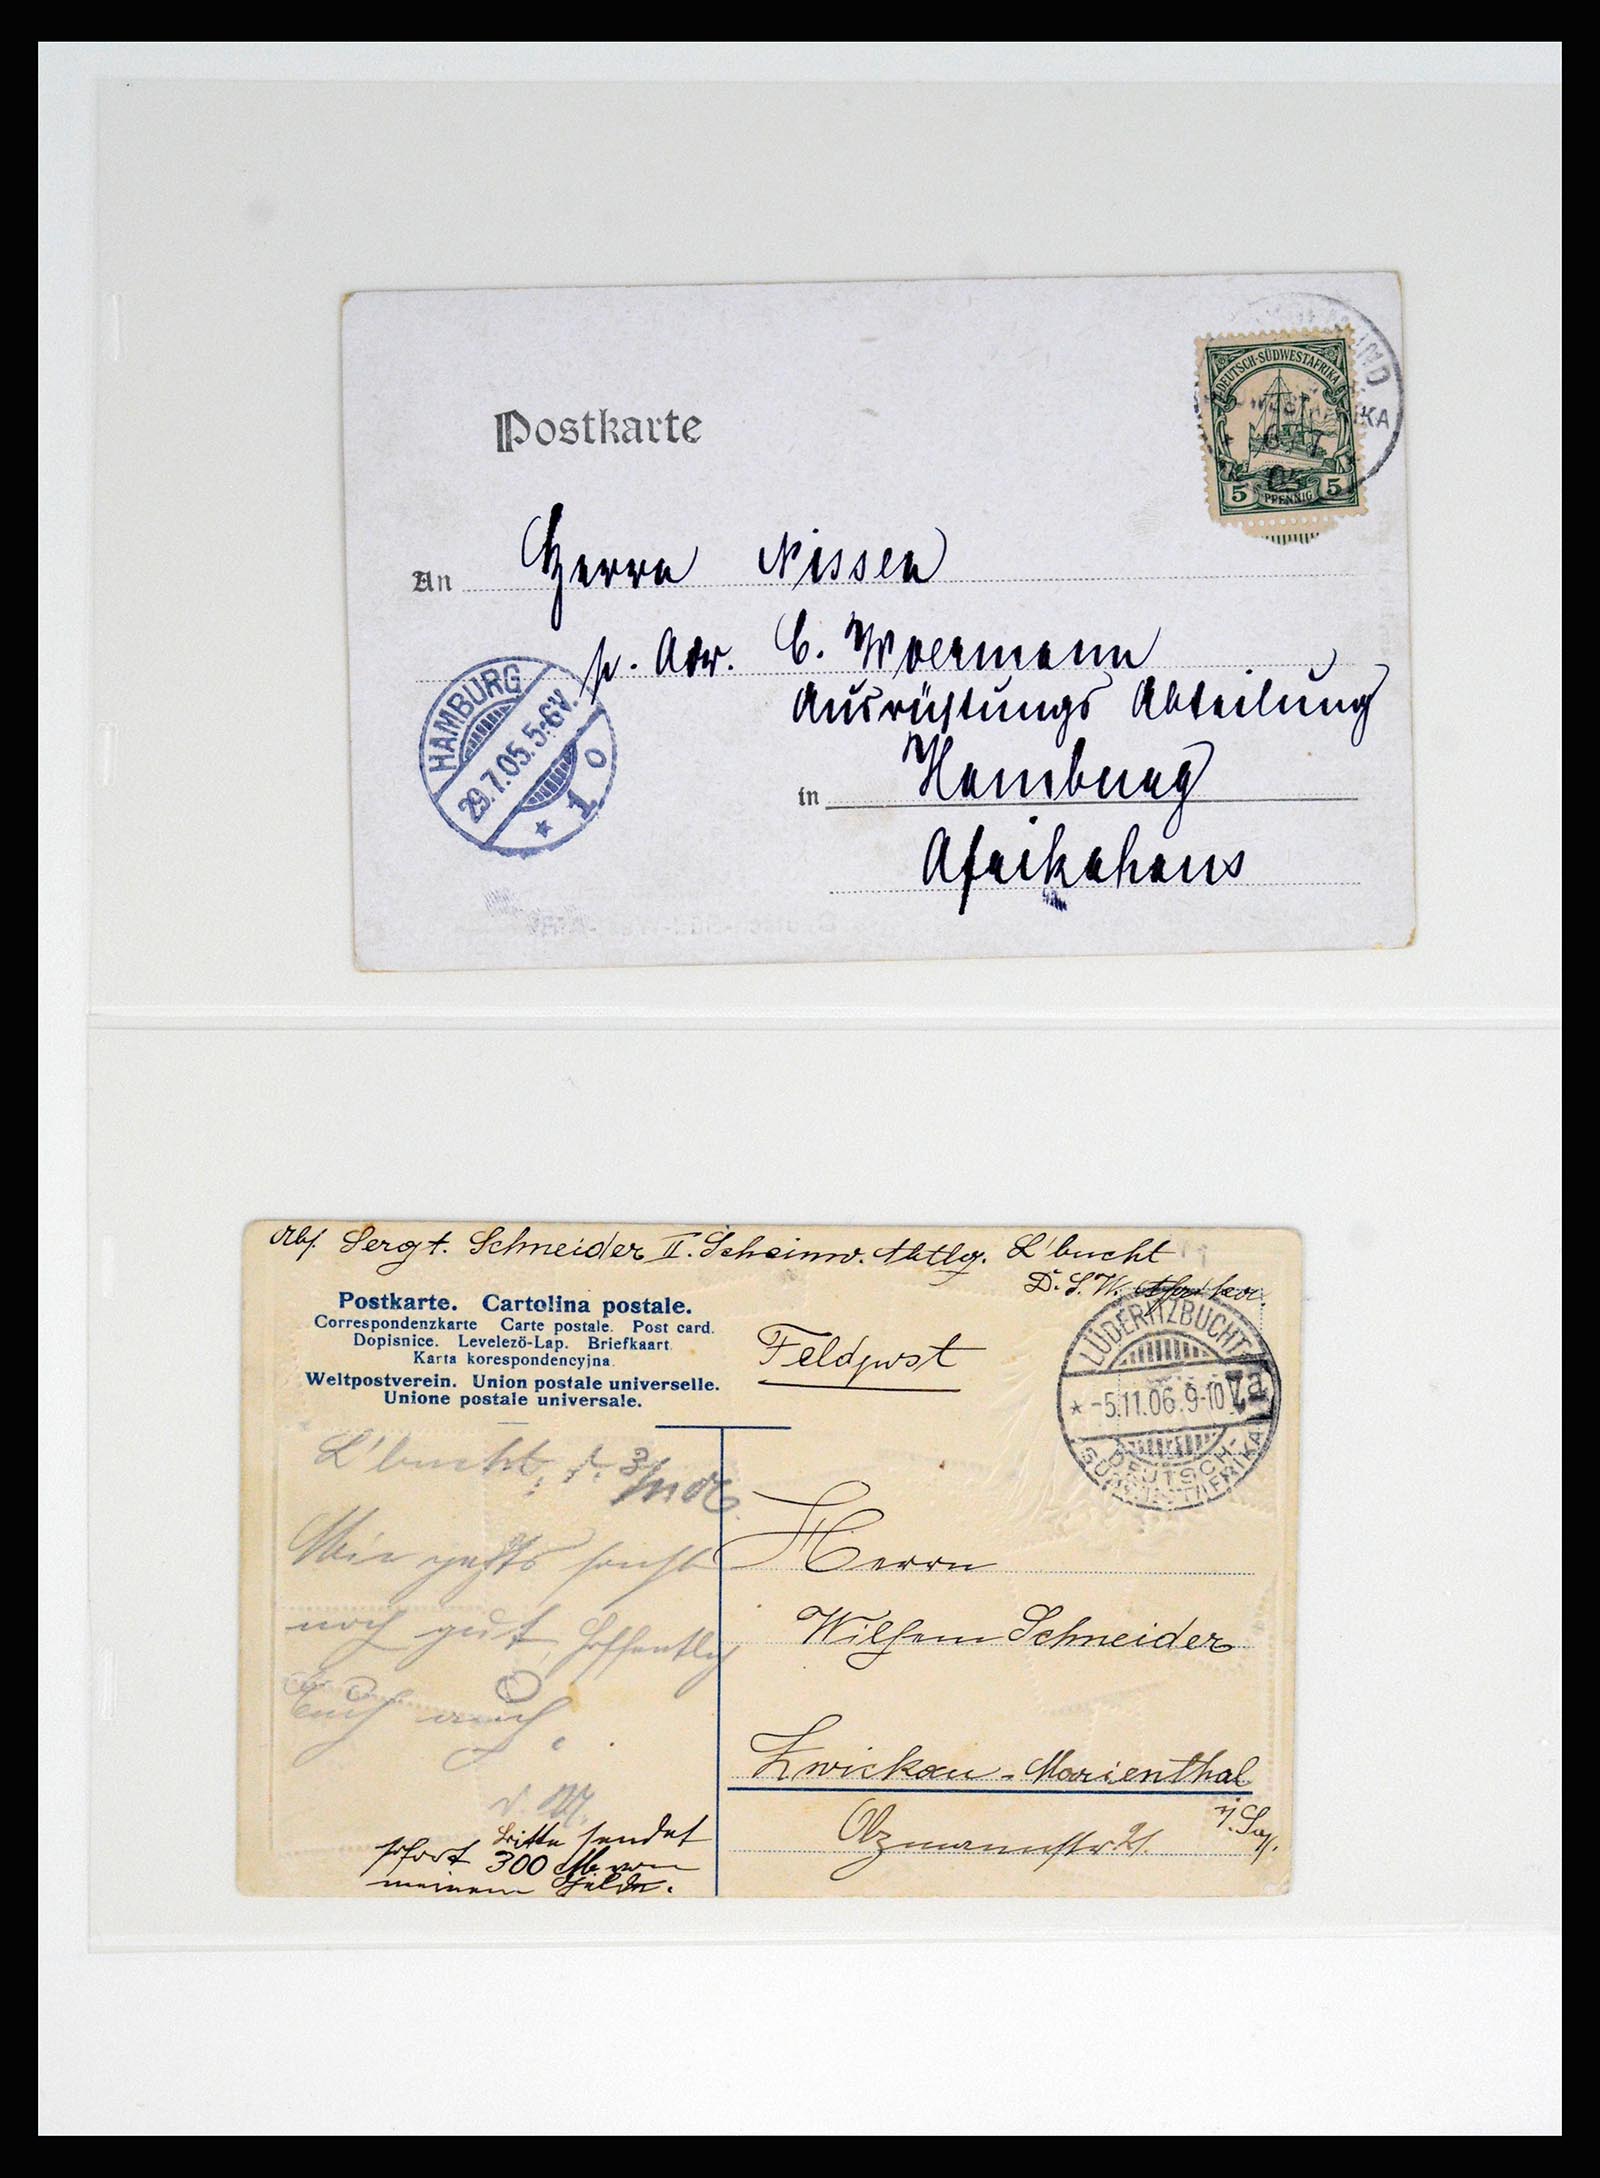 Postkarte
DEUTSCH-SÜDWESTAFRIKA
5 PFENNIG 5
An Herrn Nissen
p. Adr. C. Woermann
Ausrüstungs Abteilung
in Hamburg
Afrikahaus
HAMBURG
29.7.05.5-6V.
* 1 o
Abs. Sergt. Schneider II. Scheinw. Abtlg. L'bucht
D. S. W. Afrika
Postkarte. Cartolina postale.
Correspondenzkarte Carte postale. Post card.
Dopisnice. Levelező-Lap. Briefkaart.
Karta korespondencyjna.
Weltpostverein. Union postale universelle.
Unione postale universale.
Feldpost
LÜDERITZBUCHT
* -5.11.06.9-10V.
DEUTSCH-
SÜDWESTAFRIKA
L'bucht,
Mir geht's sonst
noch gut, hoffentlich
Euch auch.
bitte sendet
sofort 300 M. von
meinem Gelde.
Herrn
Wilhelm Schneider
Zwickau-Marienthal
i. Sa.